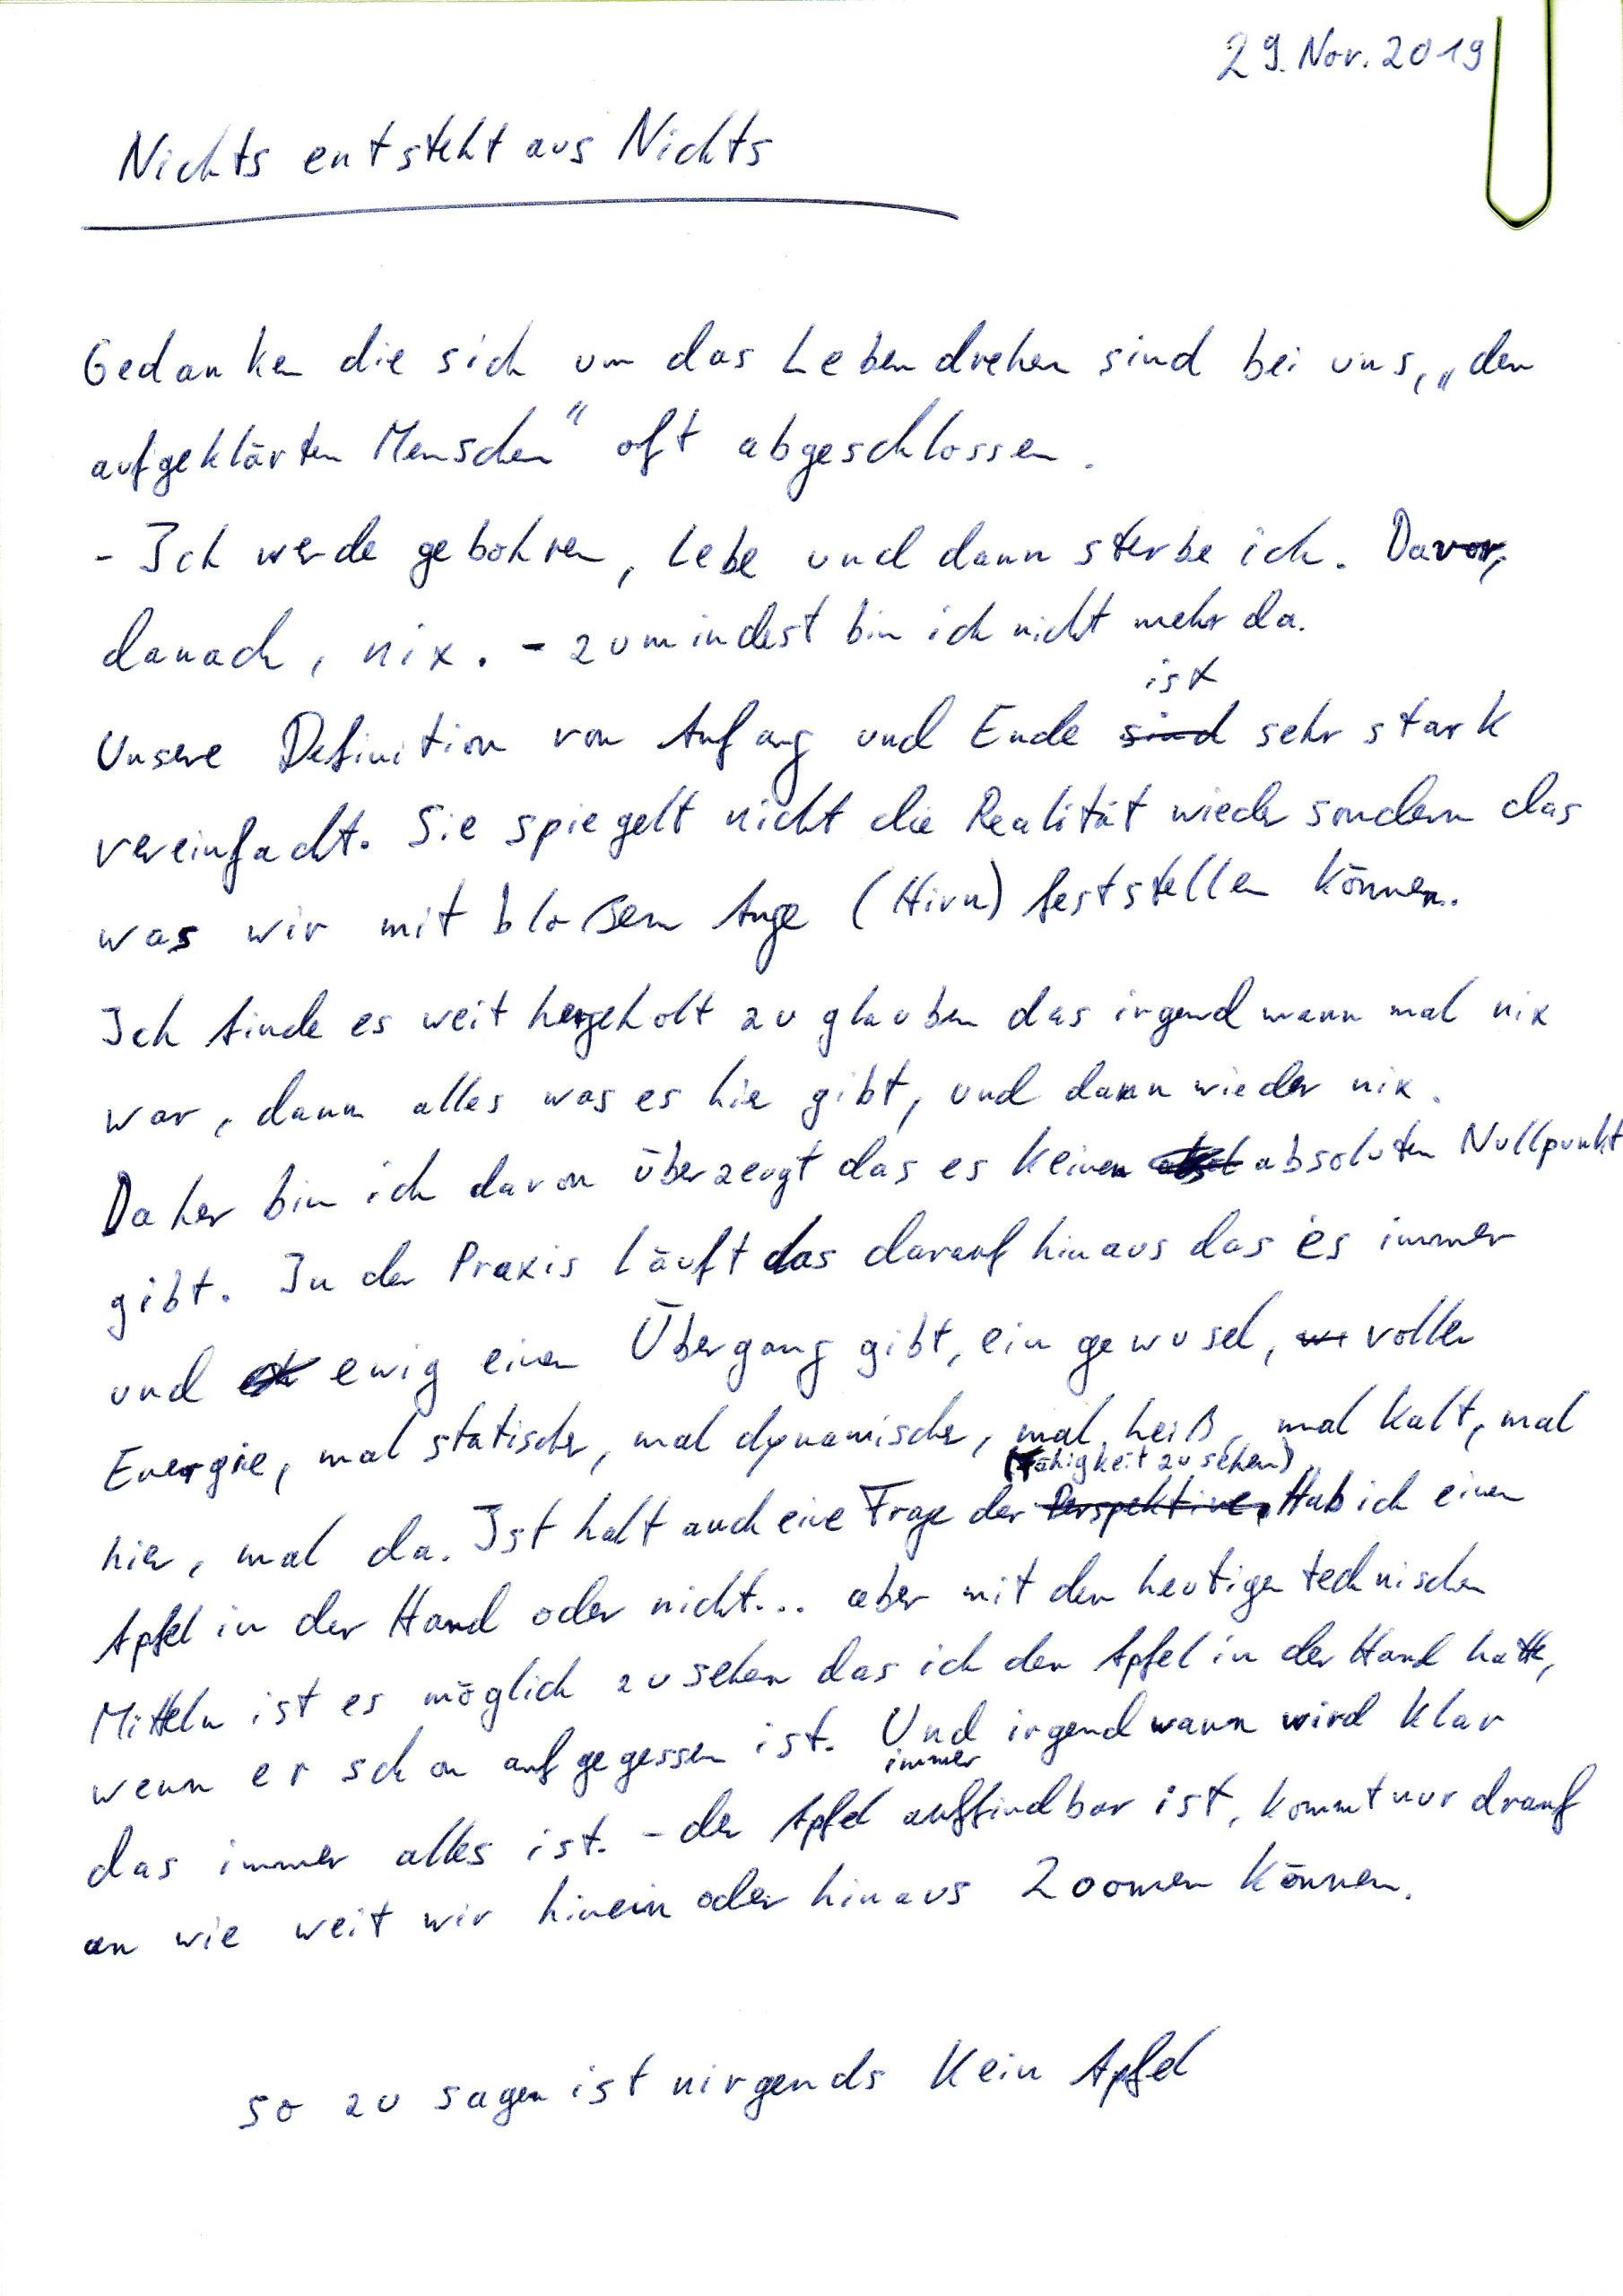 29. Nov. 2019
Nichts entsteht aus Nichts
Gedanken die sich um das Leben drehen sind bei uns, „den
aufgeklärten Menschen“ oft abgeschlossen.
- Ich werde gebohren, Lebe und dann sterbe ich. Davor,
danach, nix. - zumindest bin ich nicht mehr da.
ist
Unsere Definition von Anfang und Ende sind sehr stark
vereinfacht. Sie spiegelt nicht die Realität wieder sondern das
was wir mit bloßem Auge (Hirn) feststellen können.
Ich finde es weit hergeholt zu glauben das irgendwann mal nix
war, dann alles was es hie gibt, und dann wieder nix.
Daher bin ich davon überzeugt das es keinen absoluten Nullpunkt
gibt. In der Praxis läuft das darauf hinaus das es immer
und ewig einen Übergang gibt, ein gewusel, voller
Energie, mal statischer, mal dynamischer, mal heiß, mal kalt, mal
(Fähigkeit zu sehen)
hier, mal da. Ist halt auch eine Frage der Perspektive, Hab ich einen
Apfel in der Hand oder nicht... aber mit den heutigen technischen
Mitteln ist es möglich zu sehen das ich den Apfel in der Hand hatte,
wenn er schon aufgegessen ist. Und irgendwann wird klar
immer
das immer alles ist. - der Apfel auffindbar ist, kommt nur drauf
an wie weit wir hinein oder hinaus Zoomen können.
so zu sagen ist nirgends kein Apfel